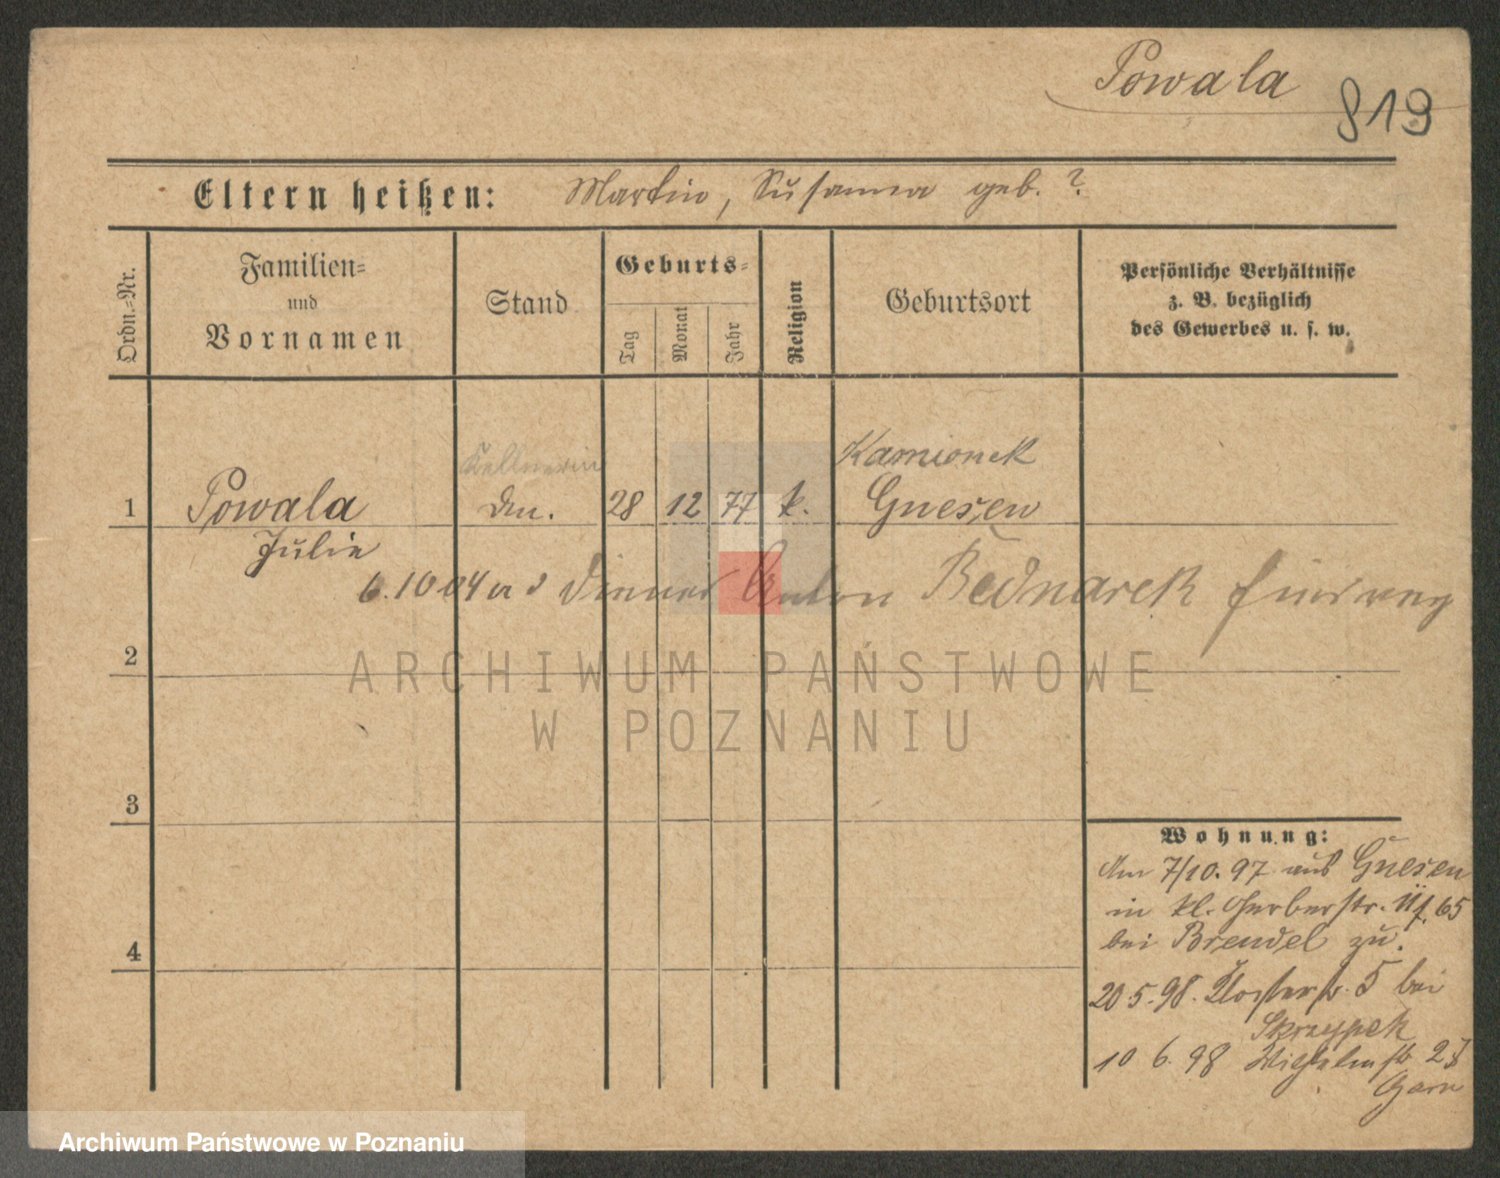 Powala
819
Eltern heißen: Martin, Susanna geb. ?
Ordn.=Nr.
Familien=
und
Vornamen
Stand
Geburts=
Tag
Monat
Jahr
Religion
Geburtsort
Persönliche Verhältnisse
z. B. bezüglich
des Gewerbes u. s. w.
Kellnerin
Kamionek
1 Powala 28 12 77 k. Gnesen
Julie
6.10 04 Diener Anton Bednarek
2
ARCHIWUM PAŃSTWOWE
W POZNANIU
3
4
Wohnung:
Am 7/10. 97 aus Gnesen
in kl. Gerberstr. 65
bei Brendel zu.
20 5. 98. Klosterstr. 5 bei
Skrzypek
10 6. 98 Wilhelmstr
Garn
Archiwum Państwowe w Poznaniu